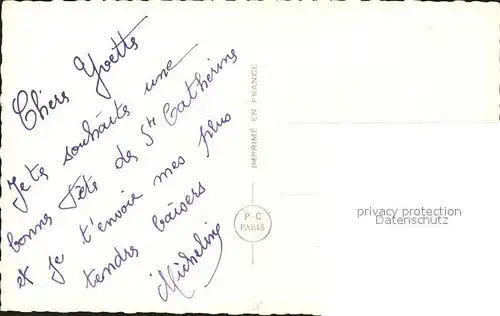 Chère Yvette
Je te souhaite une
bonne fête de Ste Catherine
et je t'envoie mes plus
tendres baisers
Micheline
IMPRIMÉ EN FRANCE
P-C
PARIS
privacy protection
Datenschutz